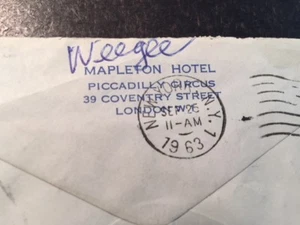 Weegee
MAPLETON HOTEL
PICCADILLY CIRCUS
39 COVENTRY STREET
LONDON W.1
NEW YORK, N.Y. 1
SEP 26
11-AM
1963